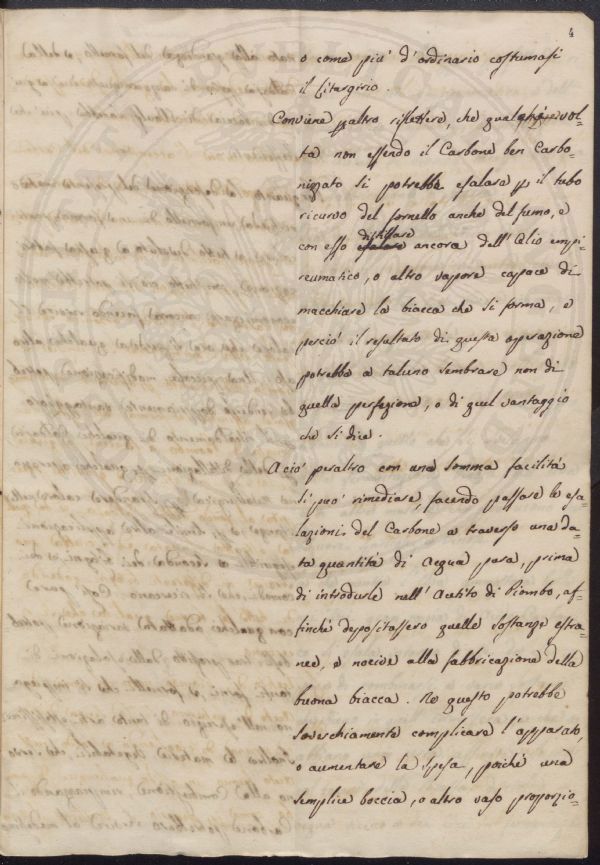 4
o come piu' d'ordinario costumasi
il Litargirio.
Conviene paltro riflettere, che qualche vol-
ta non essendo il Carbone ben Carbo-
nizzato si potrebbe esalare p il tubo
ricurvo del fornello anche del fumo, e
distillare
con esso esalare ancora dell'Olio empi-
reumatico, o altro vapore capace di
macchiare la biacca che si forma, e
percio' il resultato di questa operazione
potrebbe a taluno sembrare non di
quella perfezione, o di quel vantaggio
che si dice.
A cio' peraltro con una somma facilitá
si puo' rimediare, facendo passare le esa-
lazioni del Carbone a traverso una da-
ta quantitá di acqua pura, prima
di introdurle nell'Acetito di Piombo, af-
finché depositassero quelle sostanze estra-
nee, e nocive alla fabbricazione della
buona biacca. Ne questo potrebbe
soverchiamente complicare l'apparato,
o aumentare la spesa, poiché una
semplice boccia, o altro vaso proporzio-